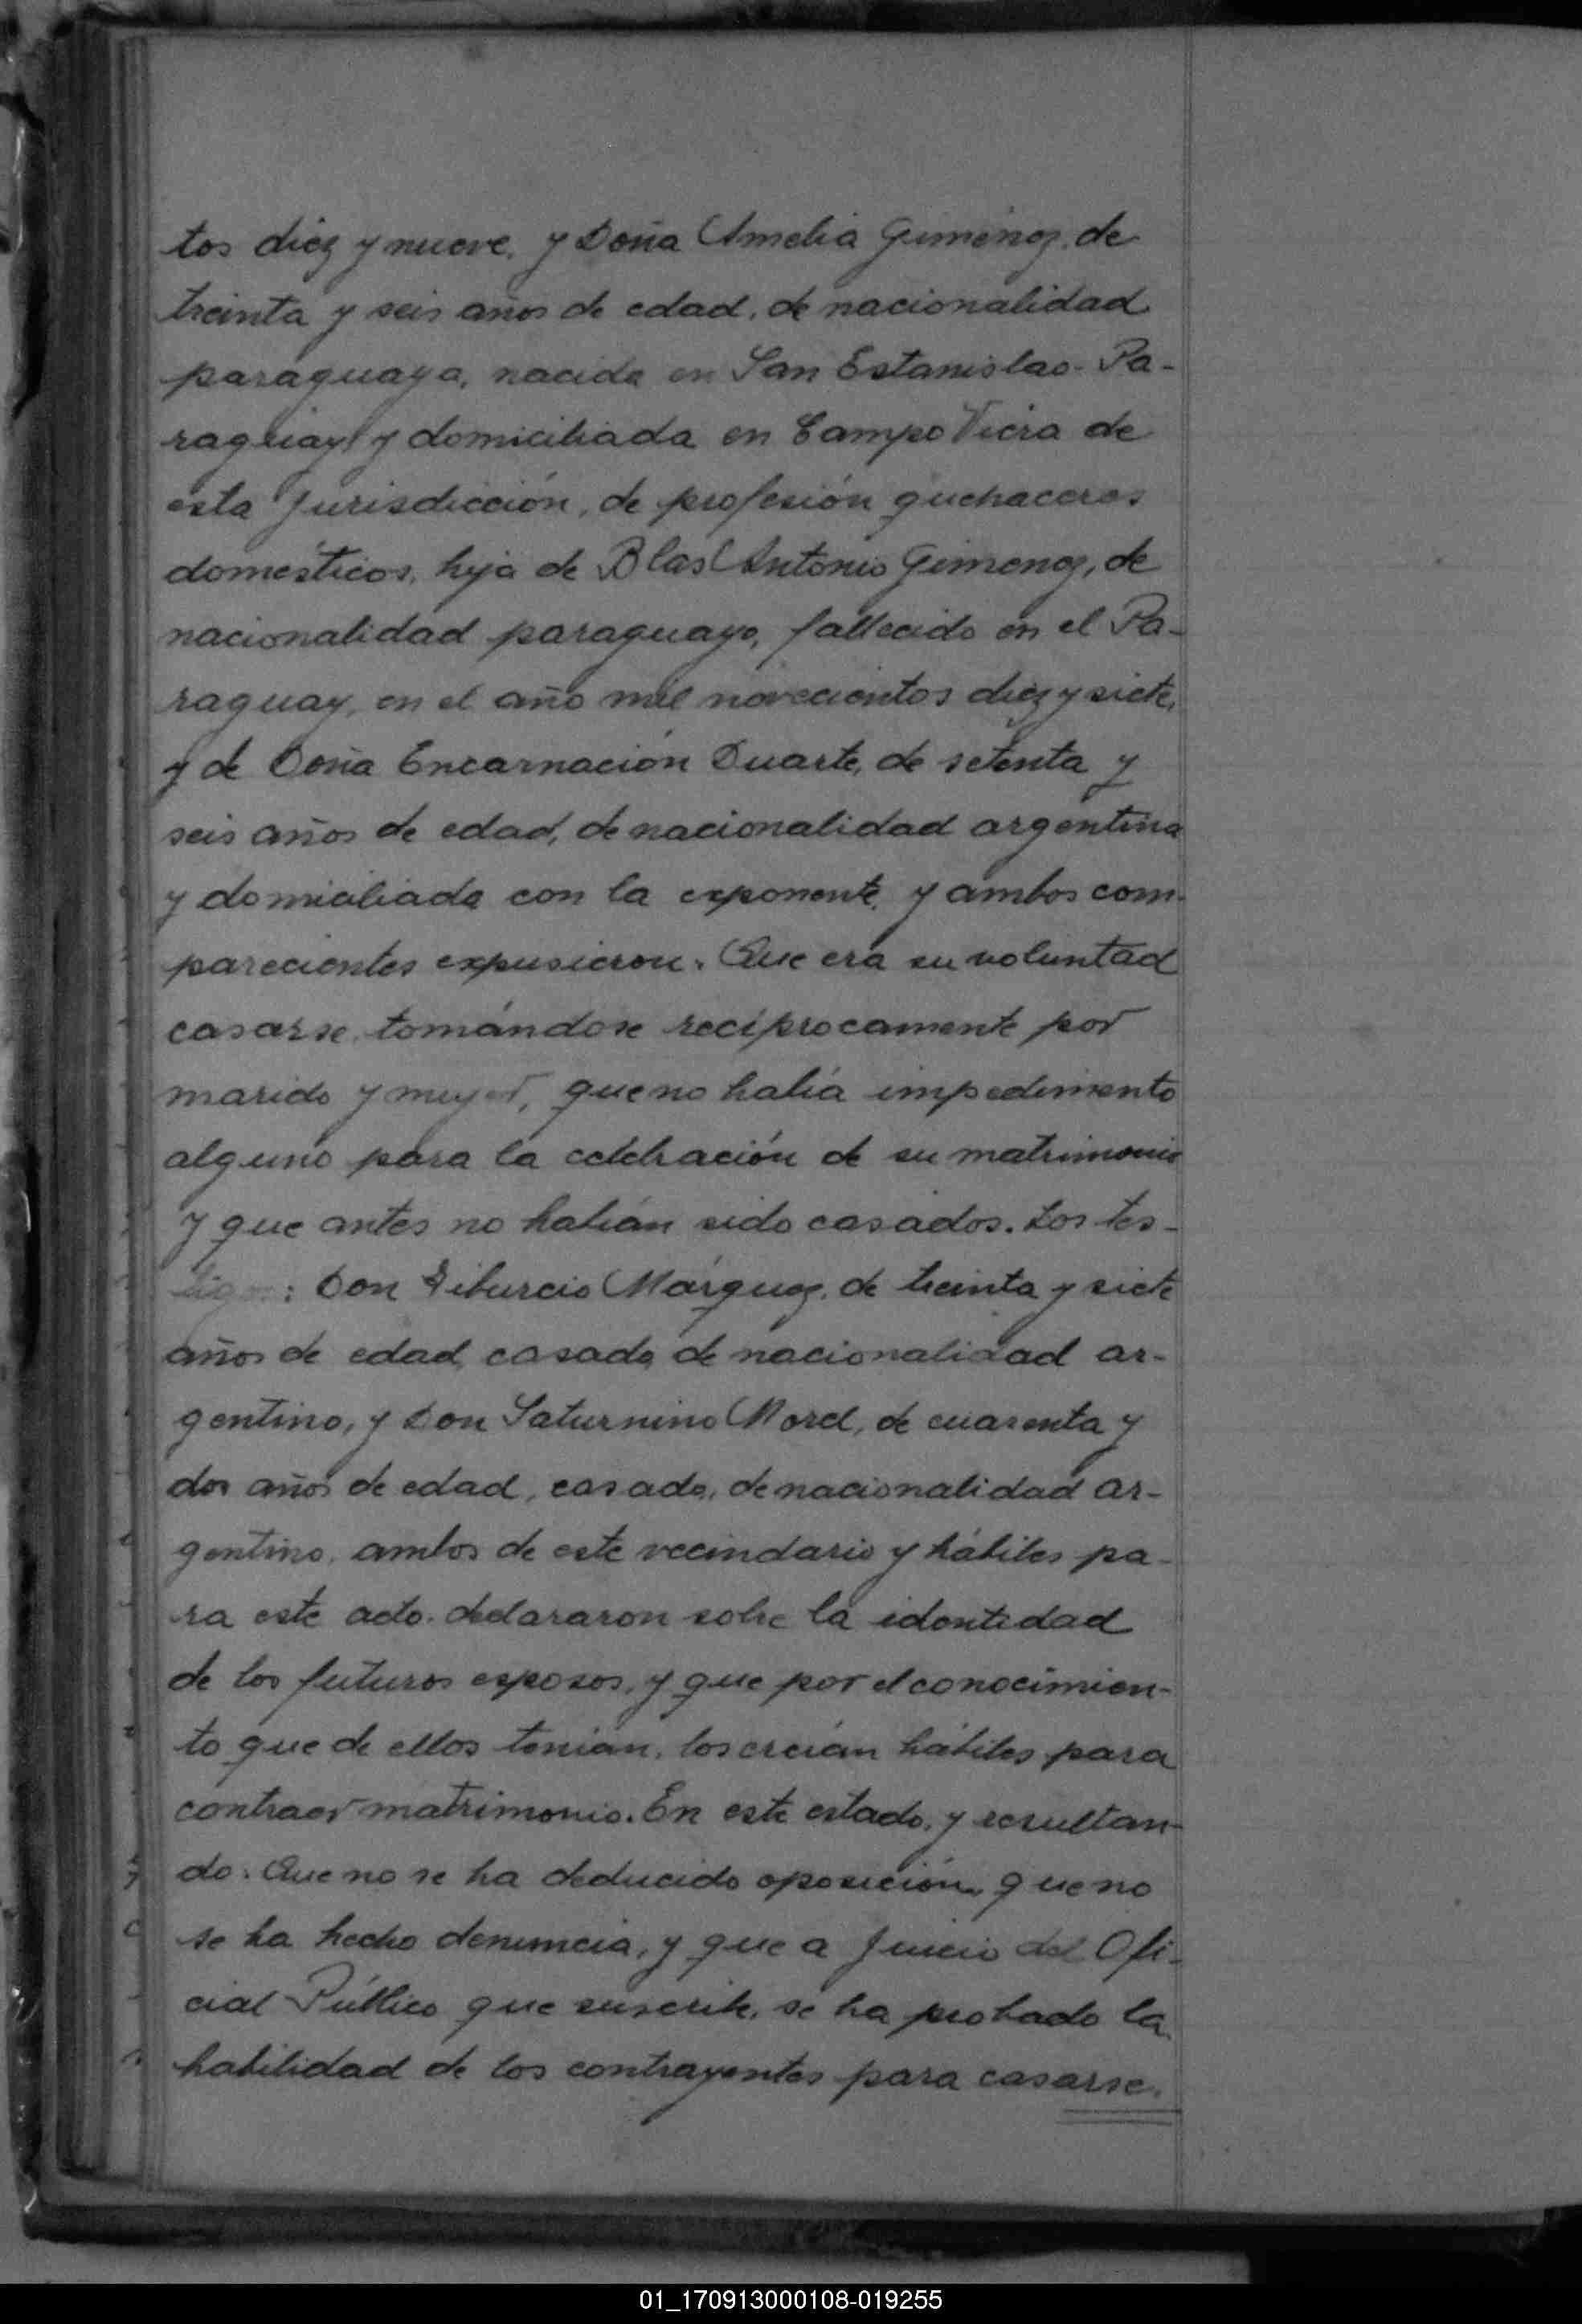 tos diez y nueve, y Doña Amelia Gimenez, de
treinta y seis años de edad, de nacionalidad
paraguaya, nacida en San Estanislao- Pa-
raguay y domiciliada en Campo Viera de
esta Jurisdicción, de profesión quehaceres
domésticos, hija de Blas Antonio Gimenez, de
nacionalidad paraguayo, fallecido en el Pa-
raguay, en el año mil novecientos diez y siete,
y de Doña Encarnación Duarte, de setenta y
seis años de edad, de nacionalidad argentina
y domiciliada con la exponente, y ambos com-
parecientes expusieron: Que era su voluntad
casarse, tomándose recíprocamente por
marido y mujer, que no había impedimento
alguno para la celebración de su matrimonio
y que antes no habían sido casados. Los tes-
tigos: Don Tiburcio Márquez, de treinta y siete
años de edad, casado, de nacionalidad ar-
gentino, y Don Saturnino Morel, de cuarenta y
dos años de edad, casado, de nacionalidad ar-
gentino, ambos de este vecindario y hábiles pa-
ra este acto, declararon sobre la identidad
de los futuros esposos, y que por el conocimien-
to que de ellos tenían, los creían hábiles para
contraer matrimonio. En este estado, y resultan-
do: Que no se ha deducido oposición, que no
se ha hecho denuncia, y que a Juicio del Ofi-
cial Público que suscribe, se ha probado la
habilidad de los contrayentes para casarse.
01_170913000108-019255